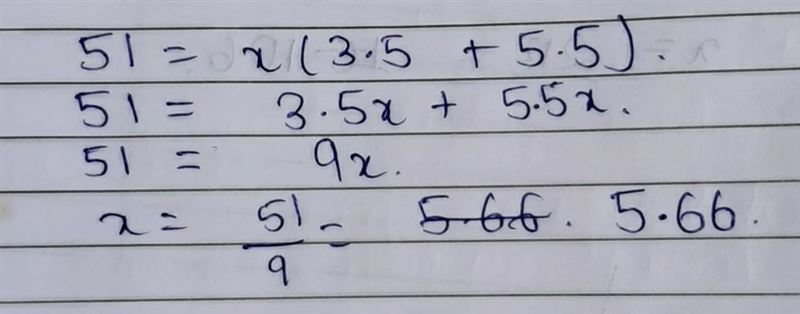 51 = x(3.5 + 5.5).
51 = 3.5x + 5.5x.
51 = 9x.
x = 51/9 = 5.66. 5.66.